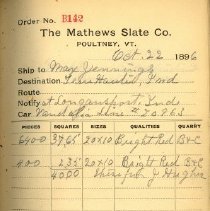 Order No. B142
The Mathews Slate Co.
POULTNEY, VT.
Oct. 22 1896
Ship to Max Jennings
Destination Terre Haute, Ind
Route
Notify at Logansport, Ind
Car Vandalia Line
PIECES SQUARES SIZES QUALITIES QUARRY
6400 37.65 20x10 Bright Red B+C
400 2.35 20x10 Bright Red B+C
40.00